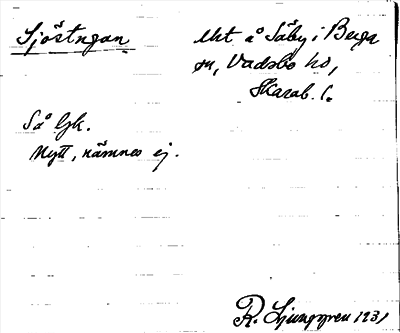 Sjöstugan
Uht å Säby i Berga
sn, Vadsbo hd,
Skarab. l.
Så Gk.
Nytt, nämnes ej.
R. Ljunggren 1931